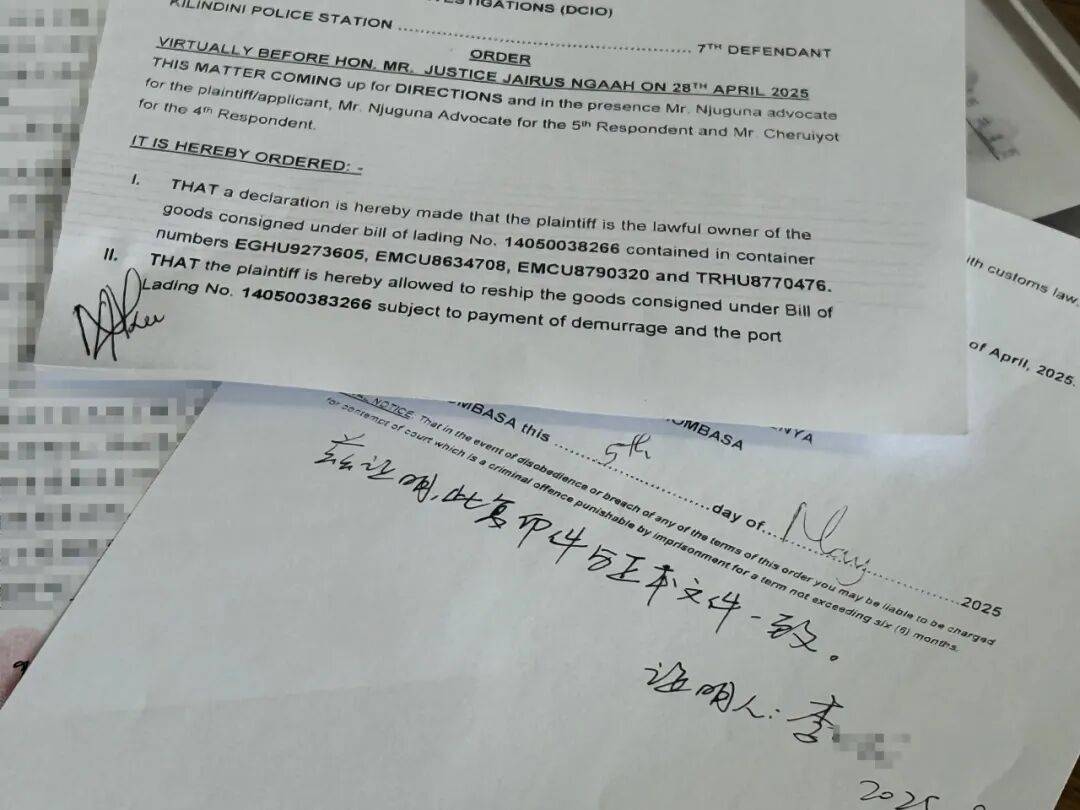 ESTIGATIONS (DCIO)
KILINDINI POLICE STATION ........................................................ 7TH DEFENDANT
ORDER
VIRTUALLY BEFORE HON. MR. JUSTICE JAIRUS NGAAH ON 28TH APRIL 2025
THIS MATTER COMING up for DIRECTIONS and in the presence Mr. Njuguna advocate
for the plaintiff/applicant, Mr. Njuguna Advocate for the 5th Respondent and Mr. Cheruiyot
for the 4th Respondent.
IT IS HEREBY ORDERED: -
I. THAT a declaration is hereby made that the plaintiff is the lawful owner of the
goods consigned under bill of lading No. 14050038266 contained in container
numbers EGHU9273605, EMCU8634708, EMCU8790320 and TRHU8770476.
II. THAT the plaintiff is hereby allowed to reship the goods consigned under Bill of
Lading No. 140500383266 subject to payment of demurrage and the port
ith customs law.
of April, 2025.
NYA
OMBASA
OMBASA this ........5th........day of....May....................2025
NOTICE: That in the event of disobedience or breach of any of the terms of this order you may be liable to be charged
for contempt of court which is a criminal offence punishable by imprisonment for a term not exceeding six (6) months.
兹证明,此复印件与正本文件一致。
证明人:李
2025